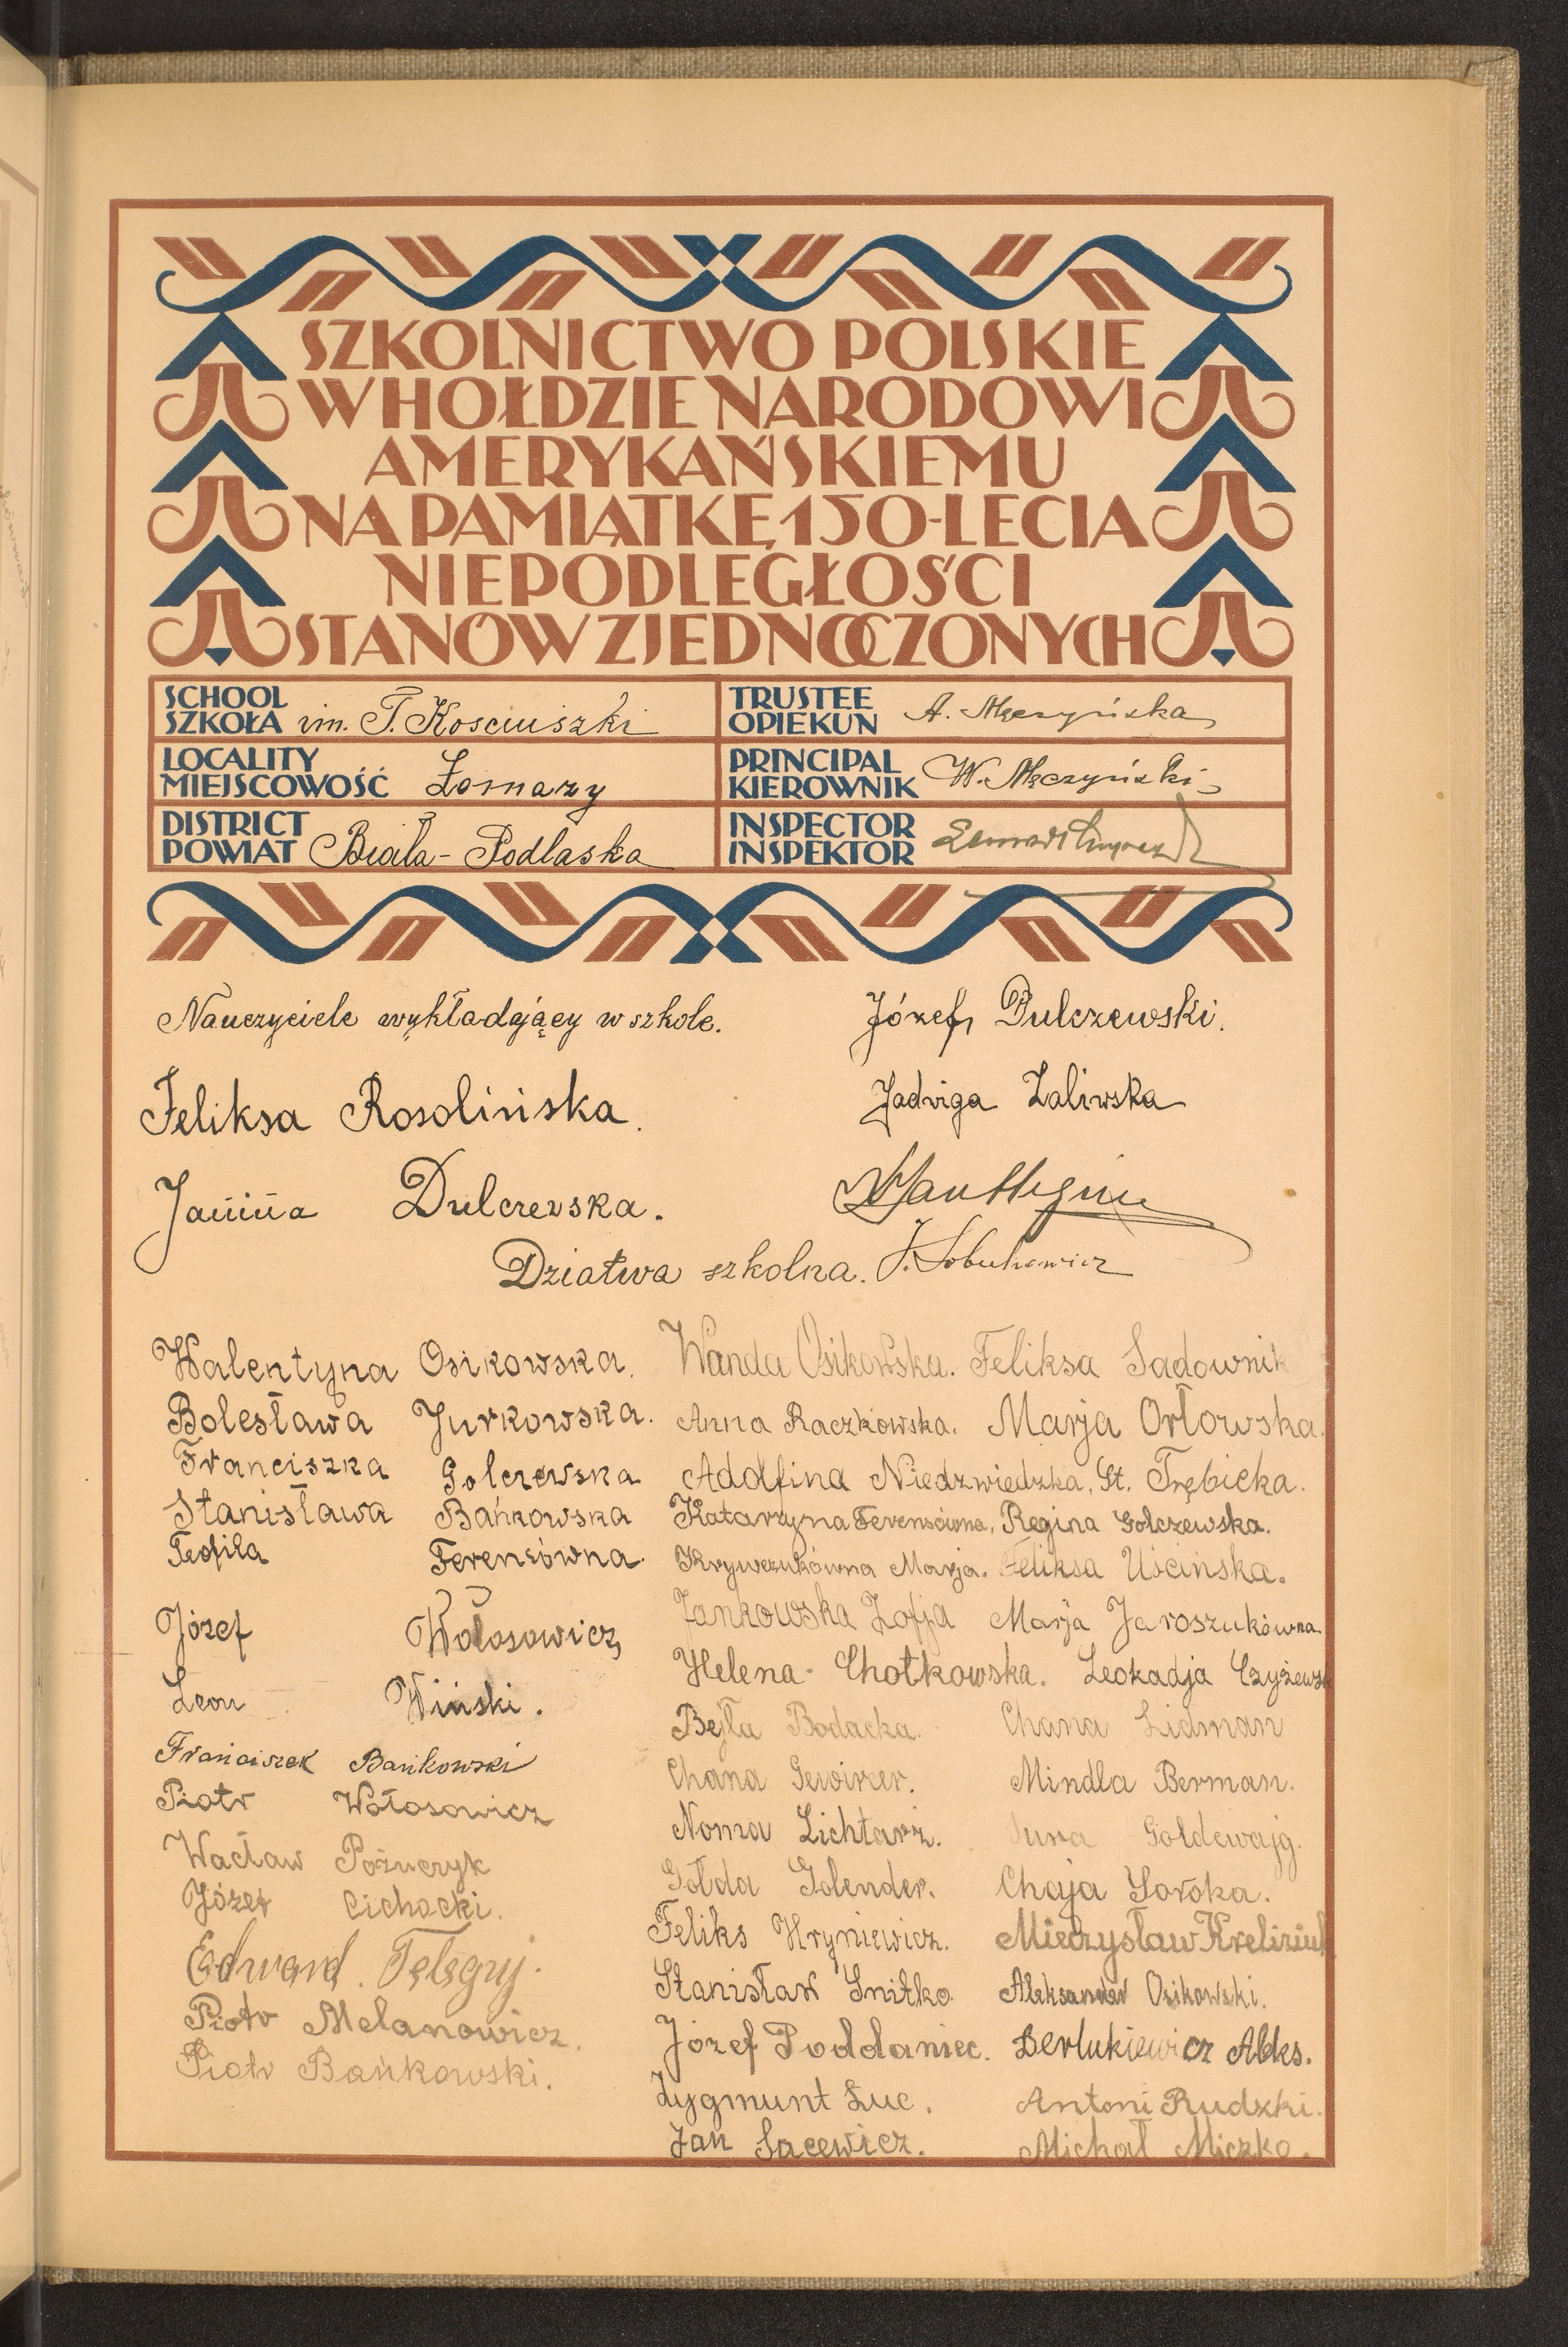 SZKOLNICTWO POLSKIE
W HOŁDZIE NARODOWI
AMERYKAŃSKIEMU
NA PAMIĄTKĘ 150-LECIA
NIEPODLEGŁOŚCI
STANÓW ZJEDNOCZONYCH
SCHOOL
SZKOŁA im. T. Kosciuszki
TRUSTEE
OPIEKUN A. Męczyńska
LOCALITY
MIEJSCOWOŚĆ Łomazy
PRINCIPAL
KIEROWNIK W. Męczyński
DISTRICT
POWIAT Biała-Podlaska
INSPECTOR
INSPEKTOR
Nauczyciele wykładający w szkole.
Józef Dulczewski.
Feliksa Rosolińska.
Jadwiga Zaliwska
Janina Dulczewska.
Dziatwa szkolna.
Walentyna Osikowska.
Bolesława Jurkowska.
Franciszka Golczewska
Stanisława Bańkowska
Teofila Ferensówna
Józef Wołosowicz
Leon Wiński.
Franciszek Bańkowski
Piotr Wołosowicz
Wacław Poźuczyk
Józef Cichocki.
Edward
Piotr Melanowicz.
Piotr Bańkowski.
Wanda Osikowska. Feliksa Sadownik
Anna Raczkowska. Marja Orłowska.
Adolfina Niedzwiedzka, St. Trębicka.
Katarzyna Ferensówna, Regina Golczewska.
Krywczukówna Marja. Feliksa Uścińska.
Jankowska Zofja Marja Jaroszukówna
Helena Chotkowska. Leokadja Czyżewsk
Bejla Bodacka. Chana Lidman
Chana Gewirzer. Mindla Berman.
Noma Lichtarz. Sura Goldewajg.
Gołda Golender. Chaja Soroka.
Feliks Hryniewicz. Mieczysław Kreliziuk
Stanisław Snitko. Aleksander Osikowski.
Józef Poddaniec. Derlukiewicz Aleks.
Zygmunt Łuc. Antoni Rudzki.
Jan Sacewicz. Michał Miczko.